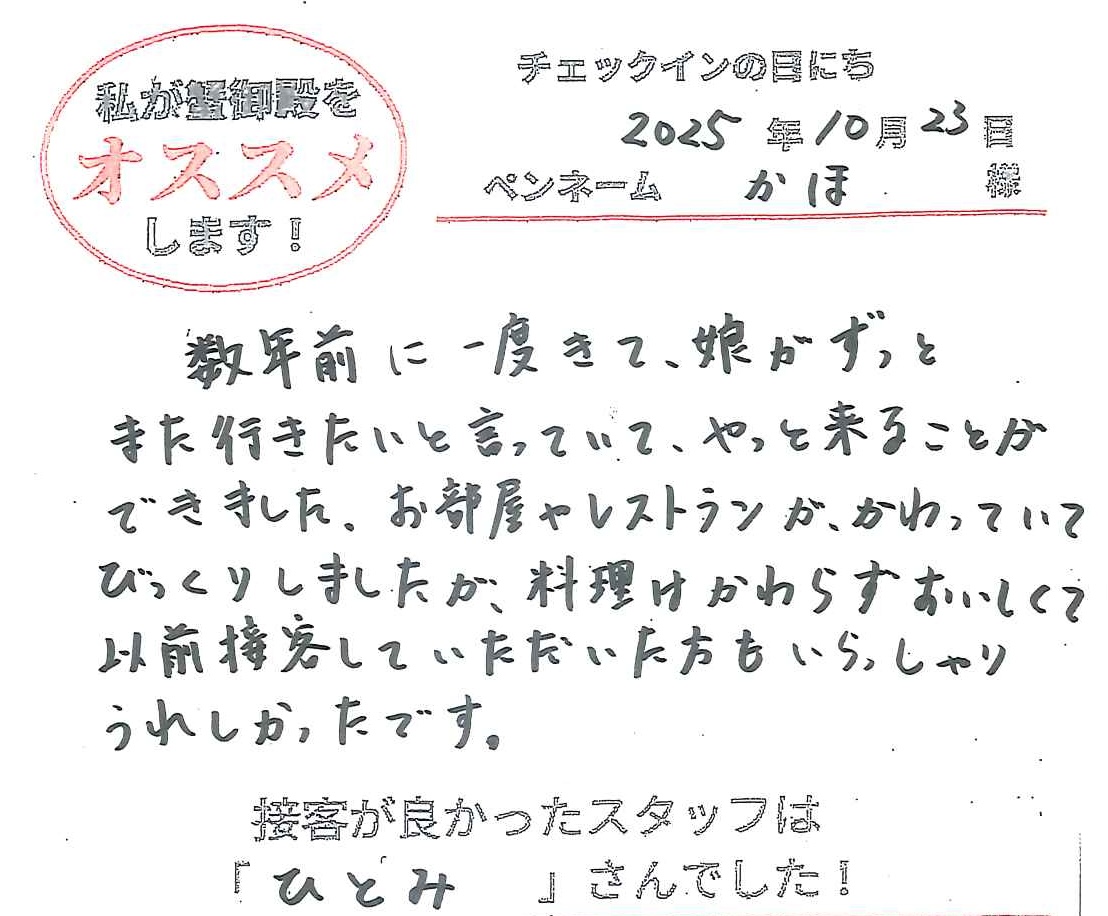 私が蟹御殿を
オススメ
します!
チェックインの日にち
2025年10月23日
ペンネーム かほ 様
数年前に一度きて、娘がずっと
また行きたいと言っていて、やっと来ることが
できました。お部屋やレストランが、かわっていて
びっくりしましたが、料理はかわらずおいしくて
以前接客していただいた方もいらっしゃり
うれしかったです。
接客が良かったスタッフは
「ひとみ」さんでした!